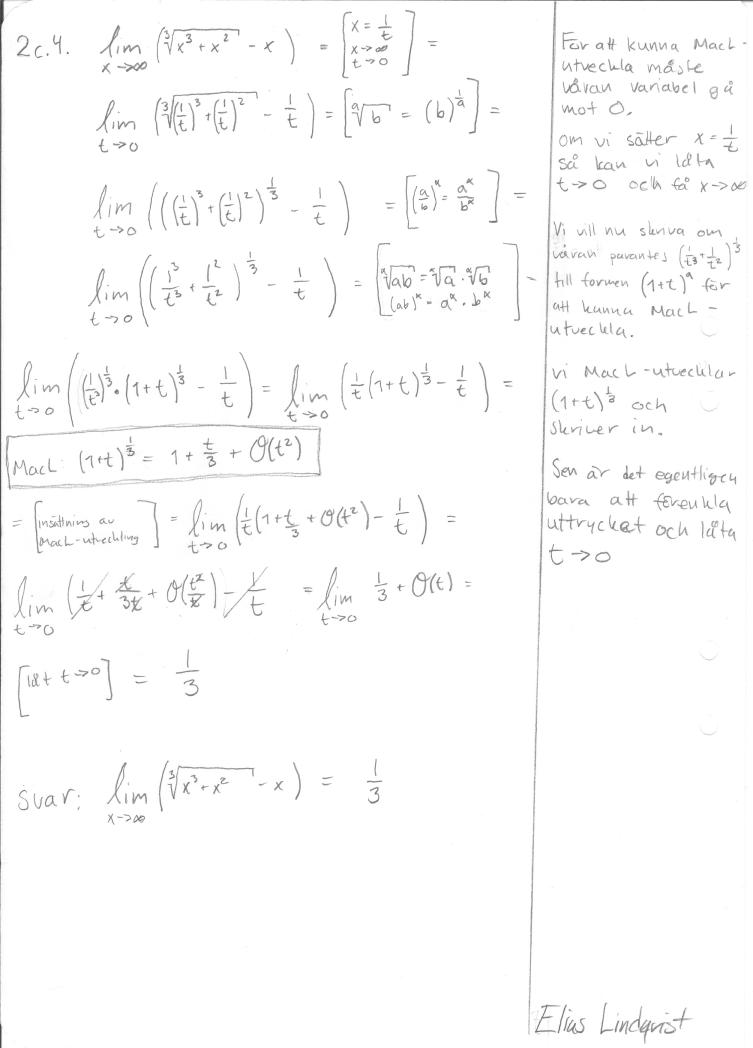 2c.4. lim x→∞ (∛(x³+x²) - x) = [x = 1/t x→∞ t→0] =
lim t→0 (∛((1/t)³+(1/t)²) - 1/t) = [ᵃ√b = (b)^(1/a)] =
lim t→0 (((1/t)³+(1/t)²)^(1/3) - 1/t) = [(a/b)^x = a^x/b^x] =
lim t→0 ((1³/t³ + 1²/t²)^(1/3) - 1/t) = [ˣ√ab = ˣ√a · ˣ√b (ab)^x = a^x · b^x] =
lim t→0 ((1/t³)^(1/3) · (1+t)^(1/3) - 1/t) = lim t→0 (1/t (1+t)^(1/3) - 1/t) =
MacL: (1+t)^(1/3) = 1 + t/3 + O(t²)
= [insättning av MacL-utveckling] = lim t→0 (1/t (1+t/3 + O(t²) - 1/t) =
lim t→0 (1/t + t/3t + O(t²/t) - 1/t = lim t→0 1/3 + O(t) =
[låt t→0] = 1/3
svar: lim x→∞ (∛(x³+x²) - x) = 1/3
För att kunna MacL-
utveckla måste
våran variabel gå
mot 0.
om vi sätter x = 1/t
så kan vi låta
t→0 och få x→∞
Vi vill nu skriva om
våran parantes (1/t³+1/t²)^(1/3)
till formen (1+t)^a för
att kunna MacL-
utveckla.
vi MacL-utvecklar
(1+t)^(1/3) och
skriver in.
Sen är det egentligen
bara att förenkla
uttrycket och låta
t→0
Elias Lindqvist